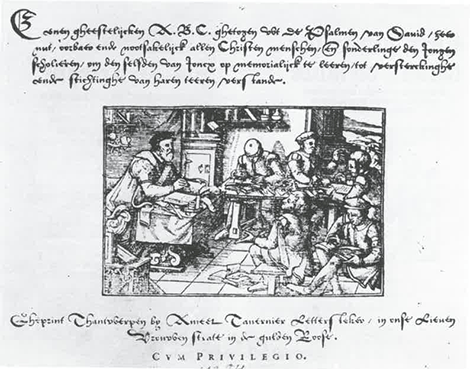 Eenen gheestelijcken A.B.C. ghetogen wt de Psalmen van David / seer
nut, oorbaer ende nootsakelijck allen Christen menschen, En sonderlinge den Jongen
scholieren, om den selfden van Joncx op memorialijck te leeren, tot versterckinghe
ende stichtinghe van haren teeren verstande.
Gheprint Thantwerpen by Ameet Tavernier Lettersteker / in onse Lieven
Vrouwen strate in de gulden Roose.
CVM PRIVILEGIO.